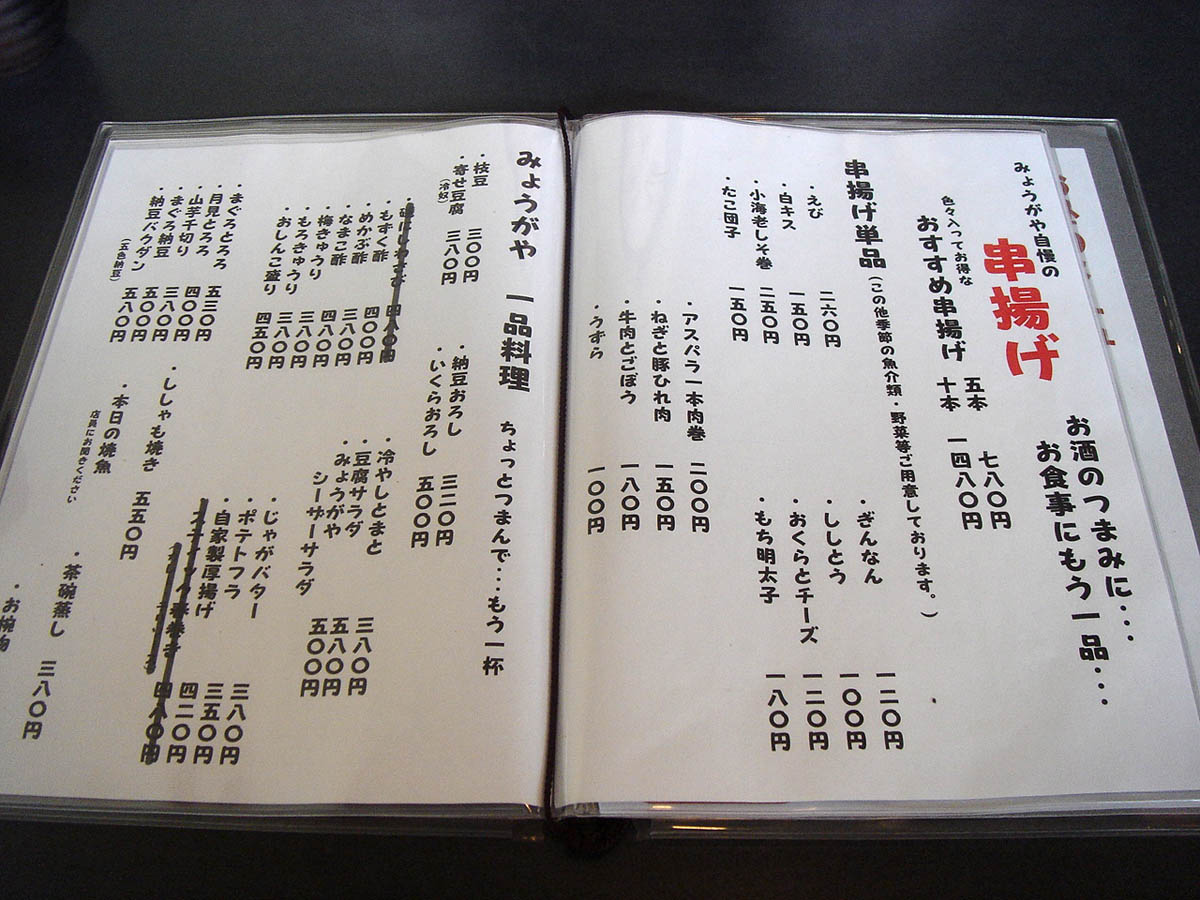 みょうがや自慢の
串揚げ
お酒のつまみに・・・・
お食事にもう一品・・・
色々入ってお得な
おすすめ串揚げ 五本 七八〇円
十本 一四八〇円
串揚げ単品(この他季節の魚介類・野菜等ご用意しております。)
・えび 二六〇円
・白キス 一五〇円
・小海老しそ巻 二五〇円
・たこ団子 一五〇円
・アスパラ一本肉巻 二〇〇円
・ねぎと豚ひれ肉 一五〇円
・牛肉とごぼう 一八〇円
・うずら 一〇〇円
・ぎんなん 一二〇円
・ししとう 一〇〇円
・おくらとチーズ 一二〇円
・もち明太子 一八〇円
みょうがや 一品料理 ちょっとつまんで・・・もう一杯
・枝豆 三〇〇円
・寄せ豆腐 三八〇円
(冷奴)
・納豆おろし 三二〇円
・いくらおろし 五〇〇円
四八〇円
・もずく酢 四〇〇円
・めかぶ酢 三八〇円
・なまこ酢 四八〇円
・梅きゅうり 三八〇円
・もろきゅうり 三八〇円
・おしんこ盛り 四五〇円
・冷やしとまと 三八〇円
・豆腐サラダ 五八〇円
・みょうがや
シーザーサラダ 五〇〇円
・まぐろとろろ 五三〇円
・月見とろろ 四〇〇円
・山芋千切り 三八〇円
・まぐろ納豆 五〇〇円
・納豆バクダン 五八〇円
(五色納豆)
・じゃがバター 三八〇円
・ポテトフラ 三五〇円
・自家製厚揚げ 四二〇円
四八〇円
・ししゃも焼き 五五〇円
・本日の焼魚
店員にお聞きください
・茶碗蒸し 三八〇円
・お椀物